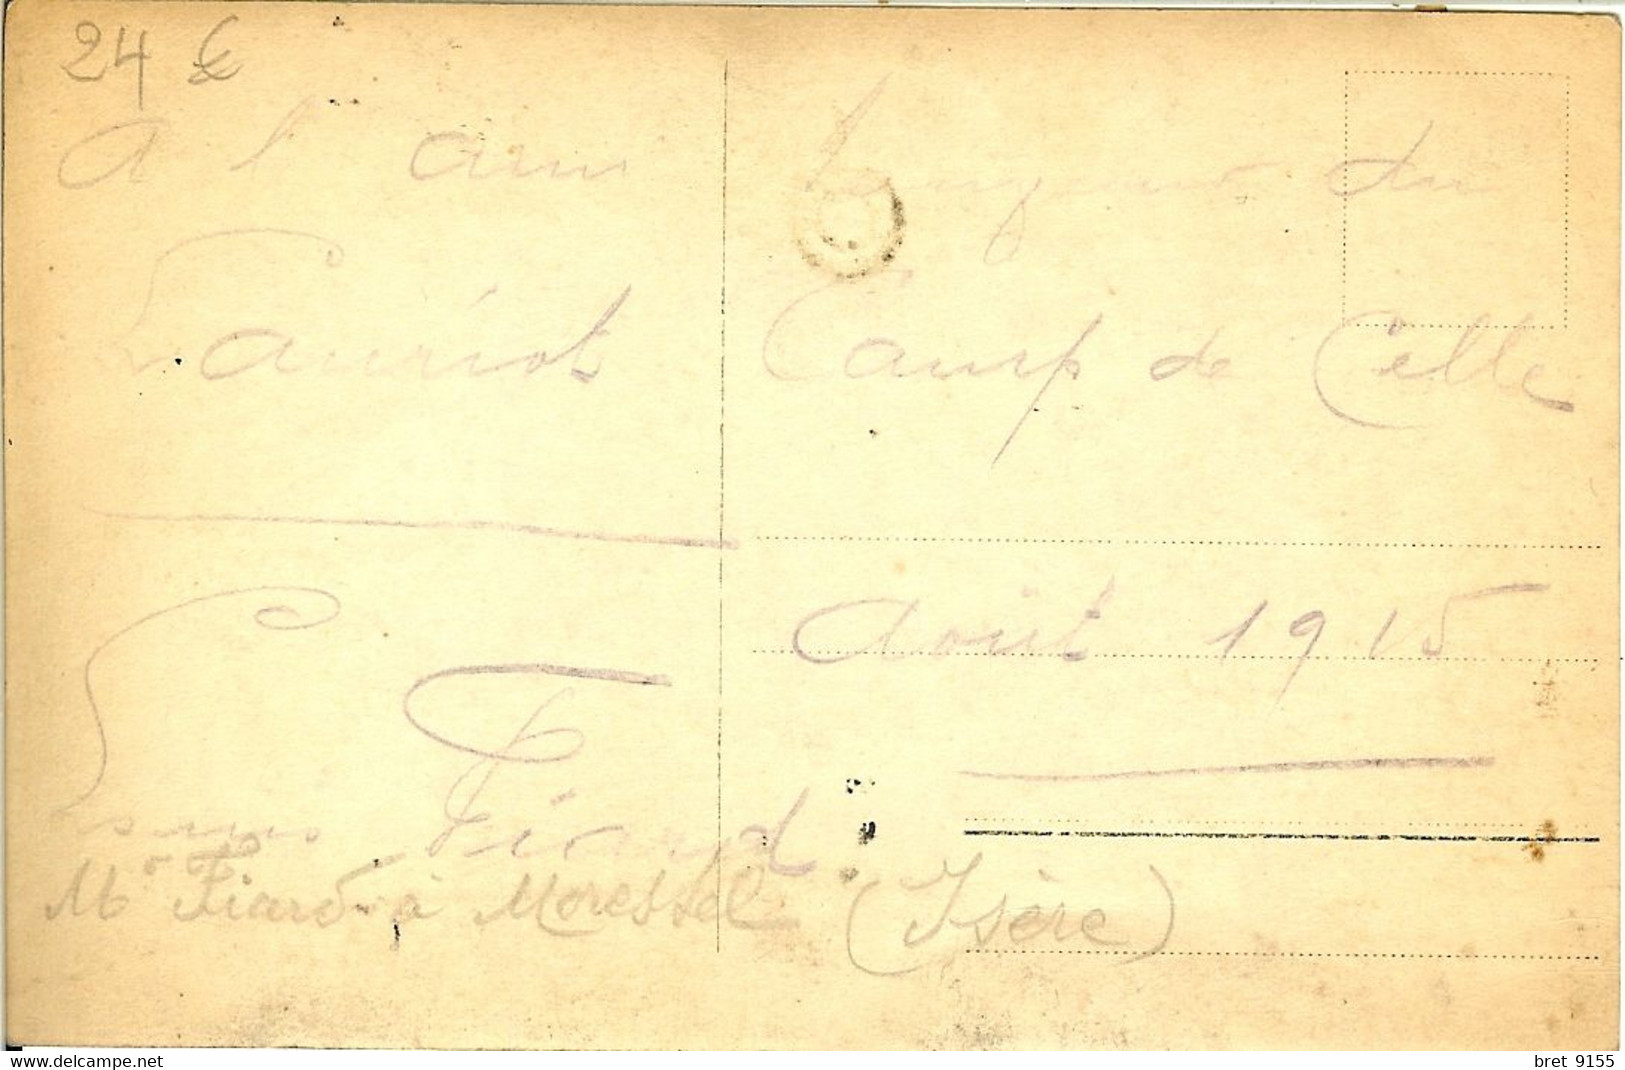 24 €
A l'ami
Lauriot
Louis Fiard
M<sup>r</sup> Fiard à Morestel (Isère)
du
Camp de Celle
Août 1915
www.delcampe.net
bret 9155